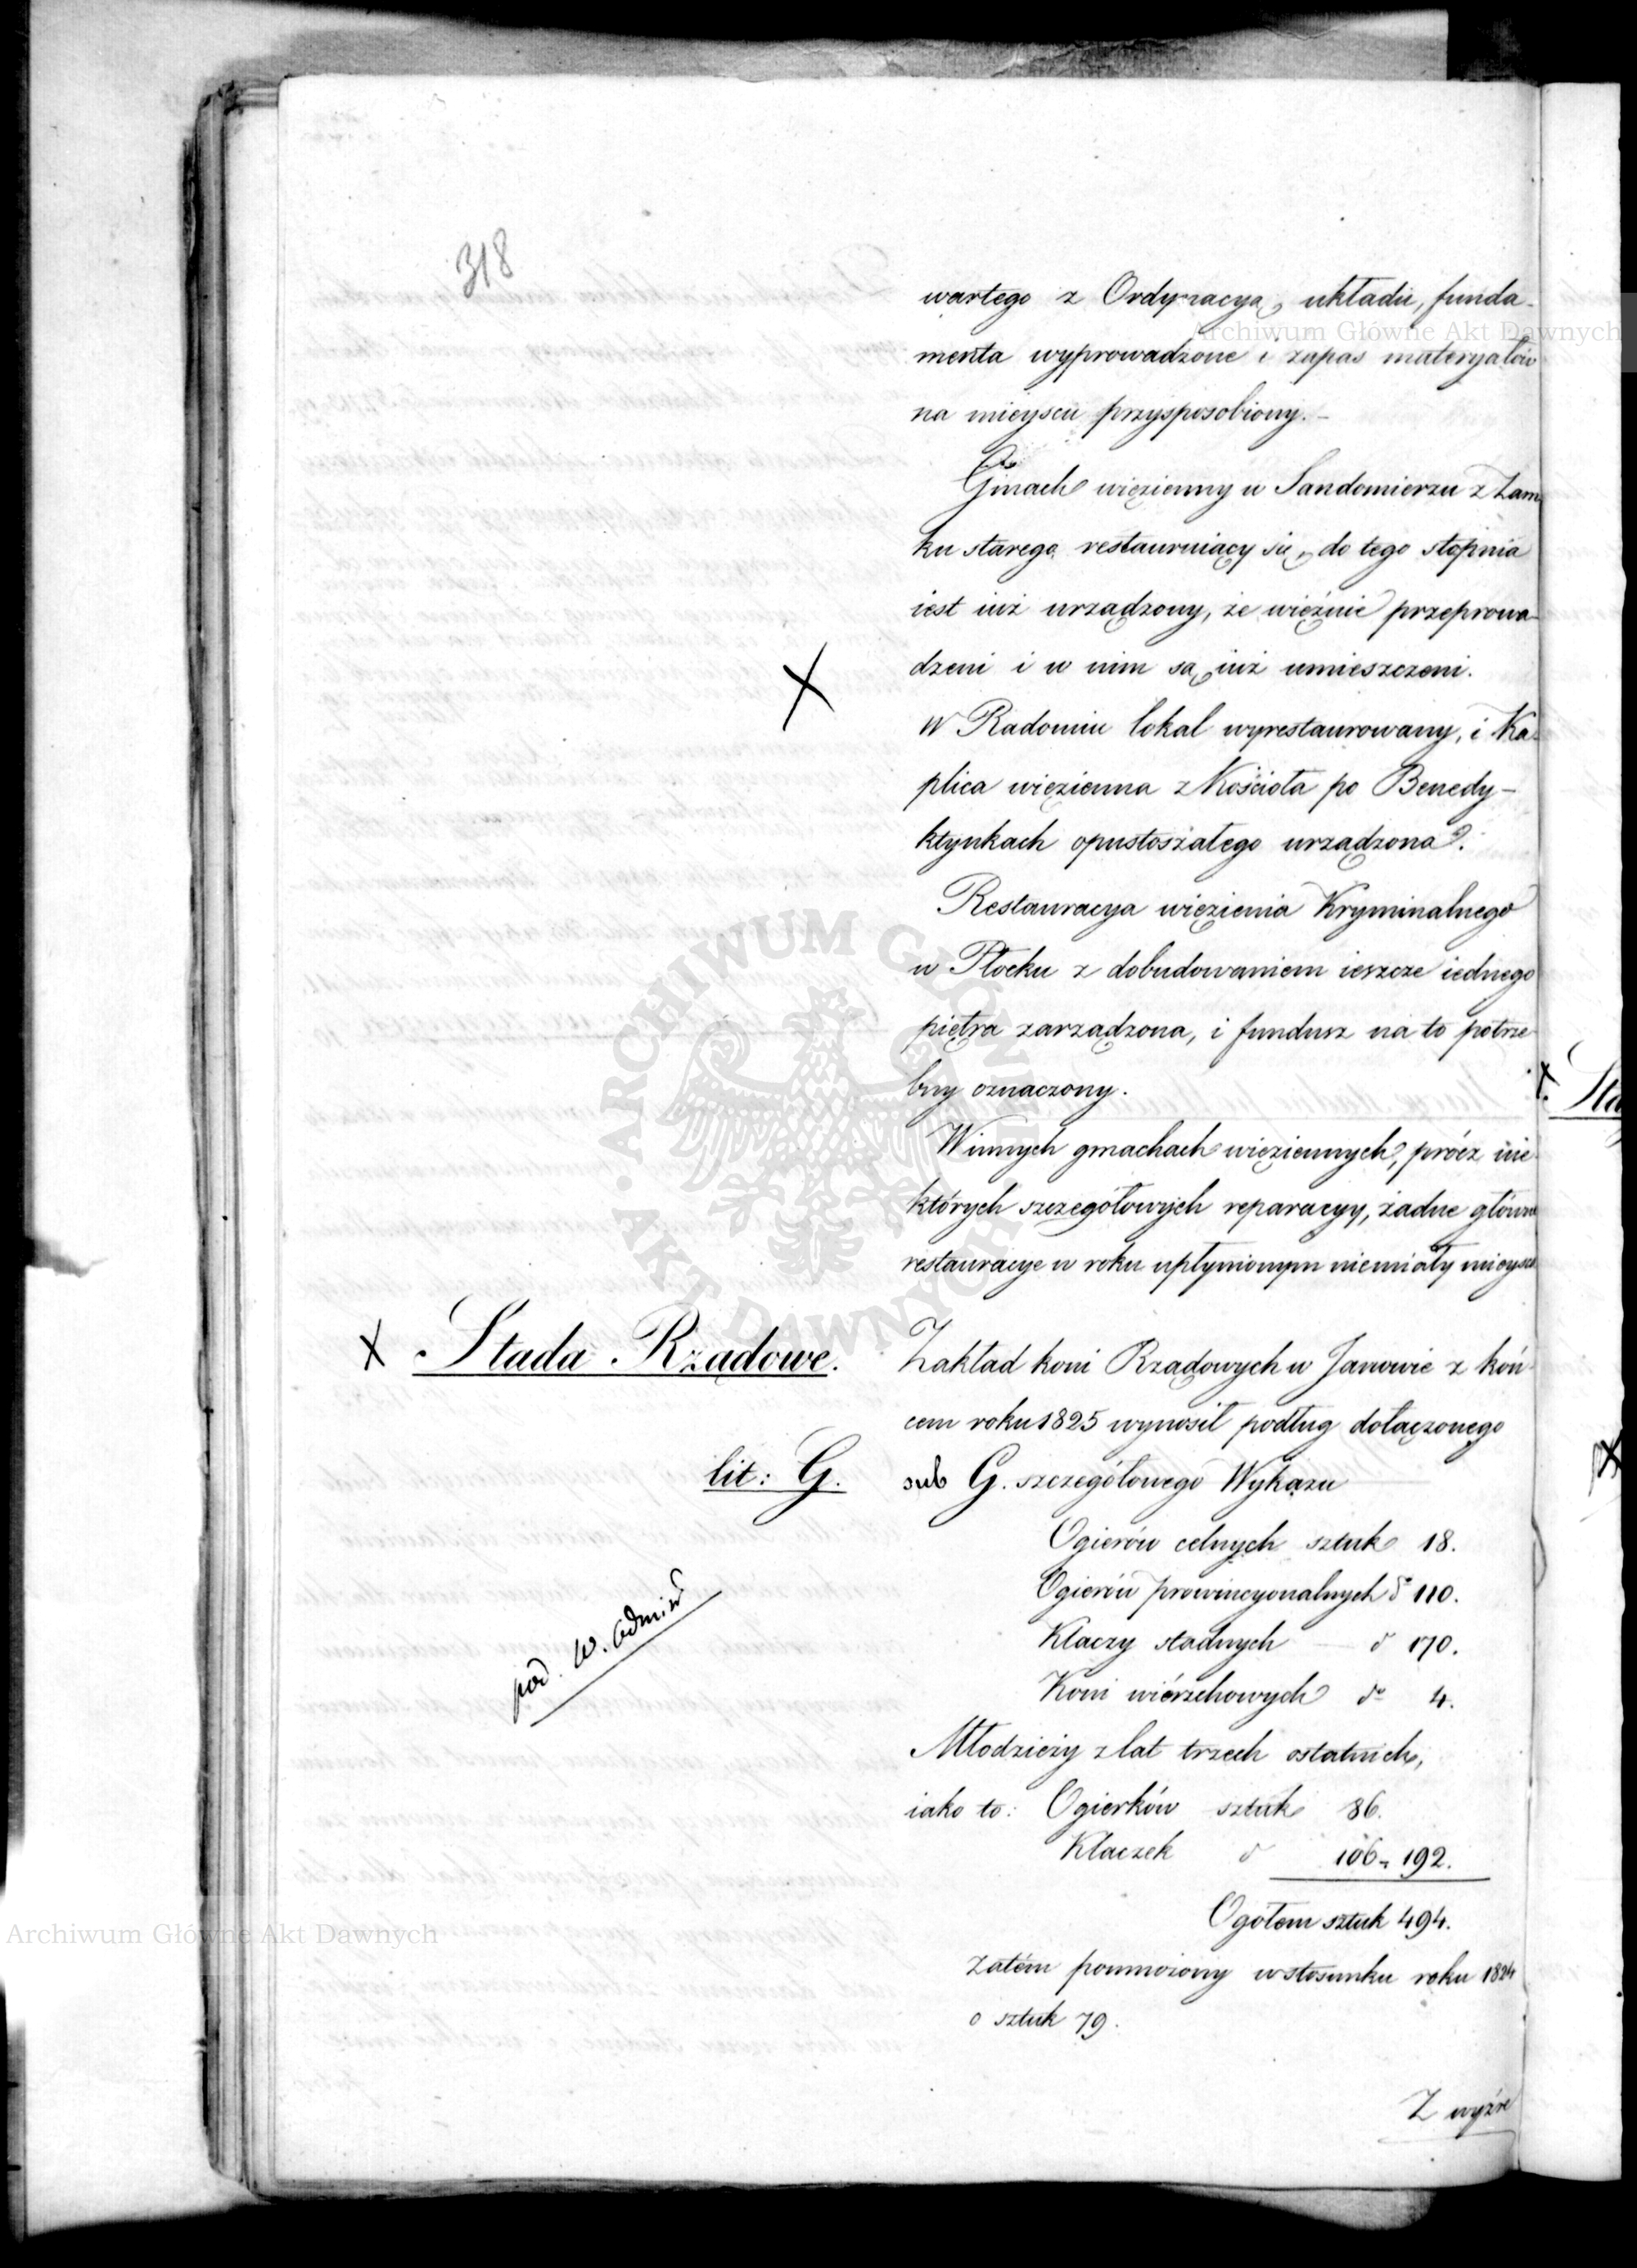 318
wartego z Ordynacyą układu, funda-
menta wyprowadzone i zapas materyałów
na mieyscu przysposobiony.-
Gmach więzienny w Sandomierzu z Zam
ku starego restauruiący się, do tego stopnia
iest iuż urządzony, że więźnie przeprowa-
dzeni i w nim są iuż umieszczeni.
W Radomiu lokal wyrestaurowany, i Ka-
plica więzienna z Kościoła po Benedy-
ktynkach opustoszałego urządzona.
Restauracya więzienia Kryminalnego
w Płocku z dobudowaniem ieszcze iednego
piętra zarządzona, i fundusz na to potrze
bny oznaczony.
W innych gmachach więziennych, prócz nie
których szczegółowych reparacyy, żadne główne
restauracye w roku upłynionym niemiały mieysca
X Stada Rządowe.
Zakład koni Rządowych w Janowie z koń-
cem roku 1825 wynosił podług dołączonego
lit: G.
sub G. szczegółowego Wykazu
Ogierów celnych sztuk 18.
Ogierów prowincyonalnych do 110.
Klaczy stadnych d 170.
Koni wiérzchowych do 4.
pod. W. Admin
Młodzieży z lat trzech ostatnich,
iako to: Ogierków sztuk 86.
Klaczek d 106 = 192.
Ogółem sztuk 494.
Zatém pomnożony w stosunku roku 1824
o sztuk 79.
Z wyźre
Archiwum Główne Akt Dawnych
Archiwum Główne Akt Dawnych
ARCHIWUM GŁÓWNE · AKT DAWNYCH